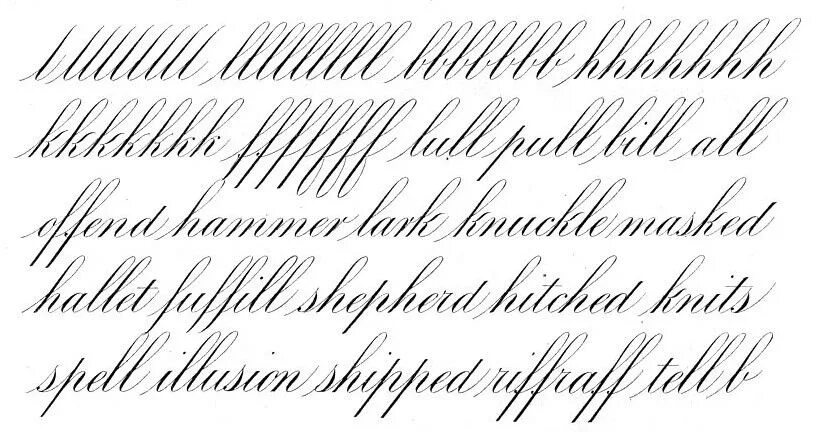 llllllll lllllllll bbbbbbb hhhhhhh
kkkkkkk fffffff lull pull bill all
offend hammer lark knuckle masked
hallet fulfill shepherd hitched knits
spell illusion shipped riffraff tell b